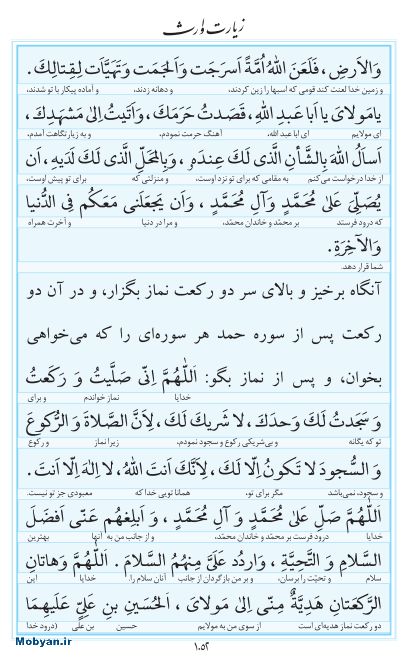 زیارت وارث
وَالاَرضِ، فَلَعَنَ اللهُ اُمَّةً اَسرَجَت وَاَلجَمَت وَتَهَیَّاَت لِقِتالِكَ.
و زمین خدا لعنت کند قومی که اسبها را زین کردند، و دهانه زدند، و آماده پیکار با تو شدند،
یامَولایَ یا اَبا عَبدِ اللهِ، قَصَدتُ حَرَمَكَ، وَاَتَیتُ اِلیٰ مَشهَدِكَ،
ای مولایم ای ابا عبد الله، آهنگ حرمت نمودم، و به زیارتگاهت آمدم،
اَسأَلُ اللهَ بِالشَّأنِ الَّذی لَكَ عِندَهُ، وَبِالمَحَلِّ الَّذی لَكَ لَدَیهِ، اَن
از خدا درخواست می‌کنم به مقامی که برای تو نزد اوست، و منزلتی که برای تو پیش اوست،
یُصَلِّیَ عَلیٰ مُحَمَّدٍ وَآلِ مُحَمَّدٍ، وَاَن یَجعَلَنی مَعَکُم فِی الدُّنیا
که درود فرستد بر محمّد و خاندان محمّد، و مرا در دنیا و آخرت همراه
وَالآخِرَةِ.
شما قرار دهد.
آنگاه برخیز و بالای سر دو رکعت نماز بگزار، و در آن دو
رکعت پس از سوره حمد هر سوره‌ای را که می‌خواهی
بخوان، و پس از نماز بگو: اَللّٰهُمَّ اِنّی صَلَّیتُ وَ رَکَعتُ
خدایا نماز خواندم و برای
وَ سَجَدتُ لَكَ وَحدَكَ، لا شَریكَ لَكَ، لِاَنَّ الصَّلاةَ وَ الرُّکوعَ
تو که یگانه و بی‌شریکی رکوع و سجود نمودم، زیرا نماز و رکوع
وَ السُّجودَ لا تَکونُ اِلّا لَكَ، لِاَنَّكَ اَنتَ اللهُ، لا اِلهَ اِلّا اَنتَ.
و سجود، نمی‌باشد مگر برای تو، همانا تویی خدا که معبودی جز تو نیست.
اَللّٰهُمَّ صَلِّ عَلیٰ مُحَمَّدٍ وَ آلِ مُحَمَّدٍ، وَ اَبلِغهُم عَنّی اَفضَلَ
خدایا درود فرست بر محمّد و خاندان محمّد، و از جانب من به آنها بهترین
السَّلامِ وَ التَّحِیَّةِ، وَاردُد عَلَیَّ مِنهُمُ السَّلامَ. اَللّٰهُمَّ وَهاتانِ
سلام و تحیّت را برسان، و بر من بازگردان از جانب آنان سلام را. خدایا این
الرَّکعَتانِ هَدِیَّةٌ مِنّی اِلیٰ مَولایَ، اَلحُسَینِ بنِ عَلِیٍّ عَلَیهِمَا
دو رکعت نماز هدیه‌ای است از سوی من به مولایم حسین بن علی (درود خدا
۱۰۵۲
Mobyan.ir